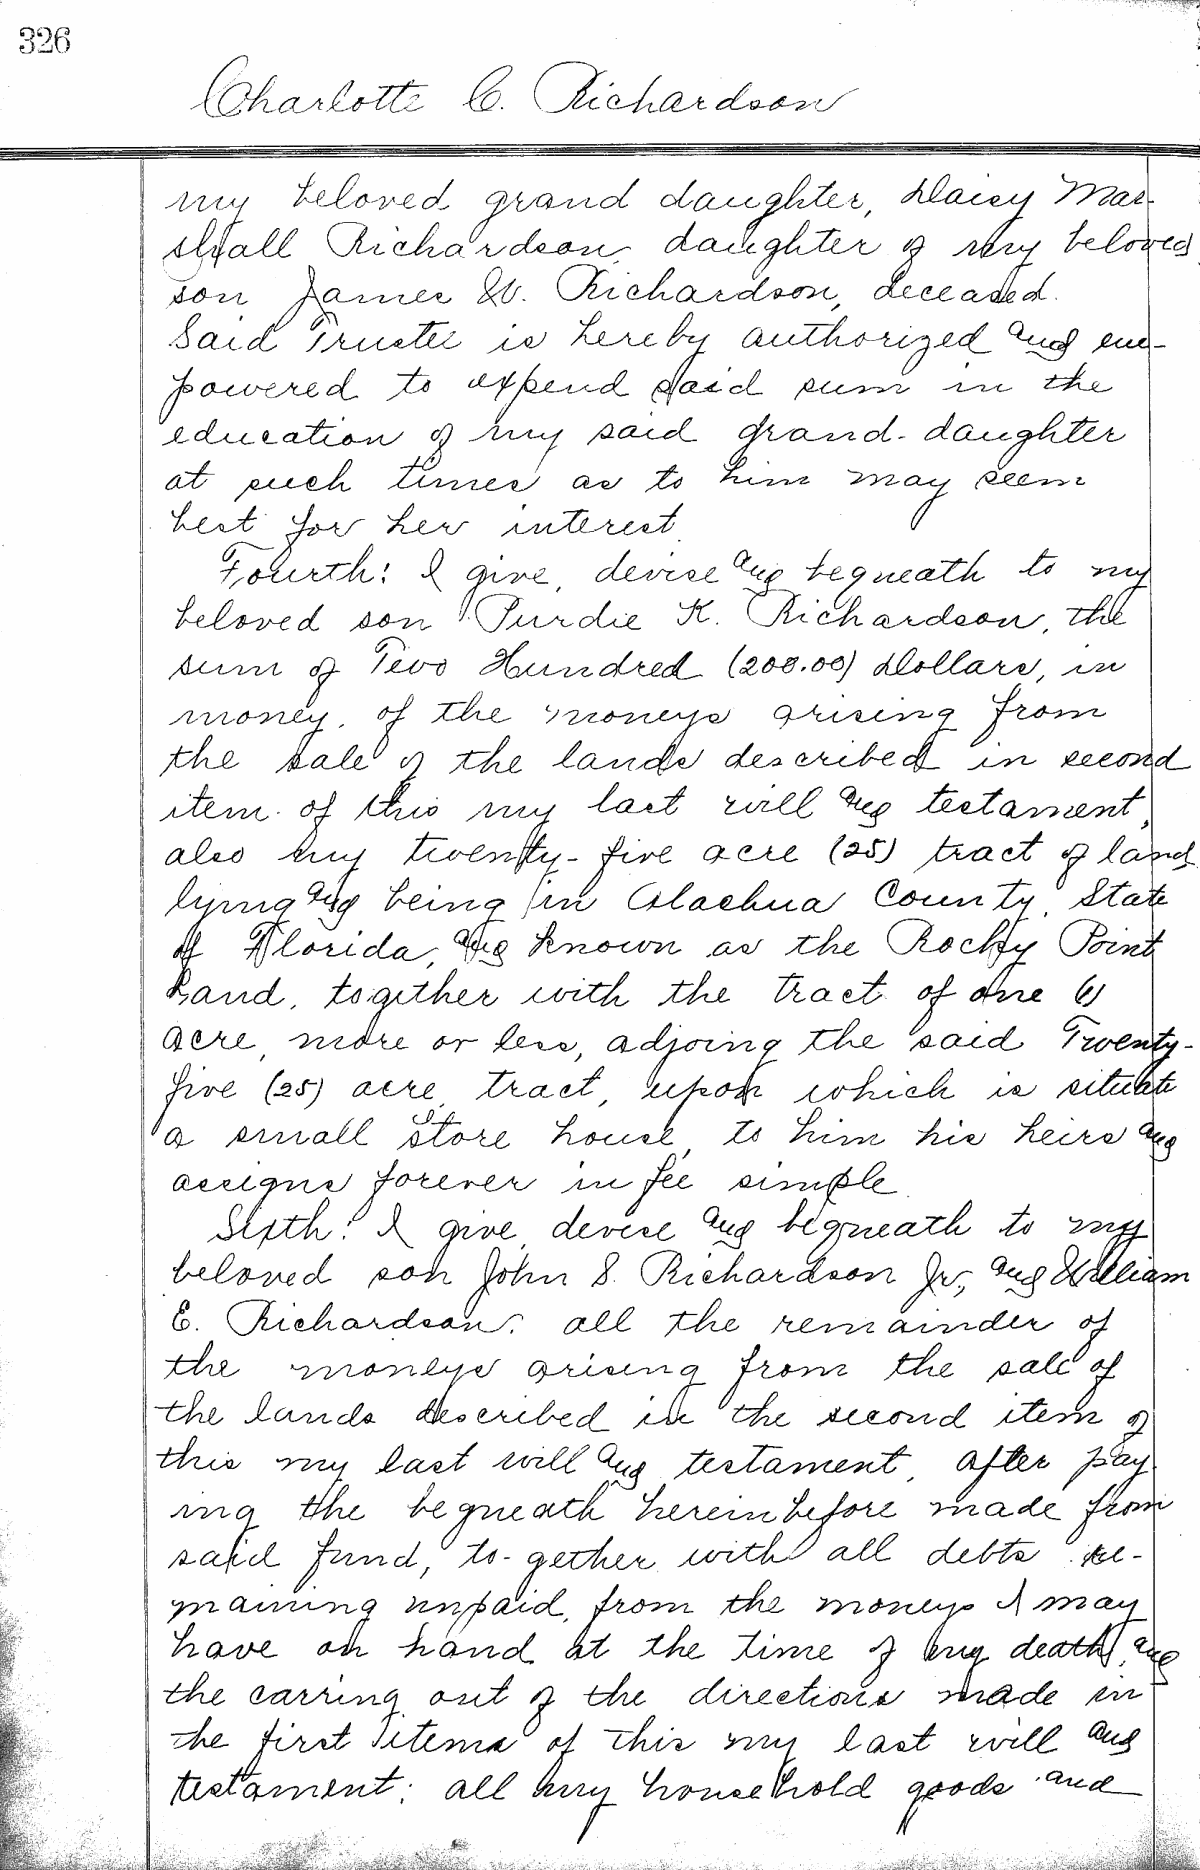 326
Charlotte C. Richardson
my beloved grand daughter, Daisy Mar-
shall Richardson, daughter of my beloved
son James W. Richardson, deceased.
Said Trustee is hereby authorized and em-
powered to expend said sum in the
education of my said grand-daughter
at such times as to him may seem
best for her interest.
Fourth: I give, devise and beqneath to my
beloved son Purdie K. Richardson, the
sum of Two Hundred (200.00) Dollars, in
money, of the moneys arising from
the sale of the lands described in second
item of this my last will and testament,
also my twenty-five acre (25) tract of land
lying and being in Alachua County, State
of Florida, and known as the Rocky Point
Land, together with the tract of one (1)
acre, more or less, adjoing the said Twenty-
five (25) acre tract, upon which is situate
a small store house, to him his heirs and
assigns forever in fee simple.
Sixth: I give, devise and beqneath to my
beloved son John S. Richardson Jr, and William
E. Richardson, all the remainder of
the moneys arising from the sale of
the lands described in the second item of
this my last will and testament, after pay
ing the beqneath hereinbefore made from
said fund, to-gether with all debts re-
maining unpaid, from the moneys I may
have on hand at the time of my death, and
the carring out of the directions made in
the first items of this my last will and
testament; all my household goods and